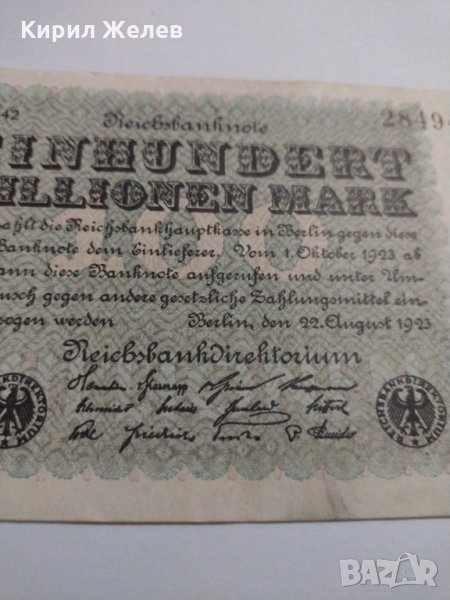 Кирил Желев
42 Reichsbanknote 28494
EINHUNDERT
MILLIONEN MARK
zahlt die Reichsbankhauptkasse in Berlin gegen diese
Banknote dem Einlieferer. Vom 1. Oktober 1923 ab
kann diese Banknote aufgerufen und unter Um-
tausch gegen andere gesetzliche Zahlungsmittel ein-
gezogen werden Berlin, den 22. August 1923
Reichsbankdirektorium
REICHSBANKDIREKTORIUM
bazar